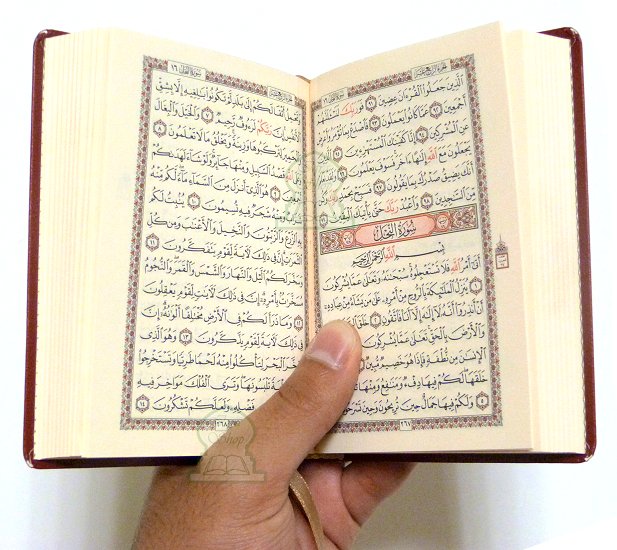 الجزء الرابع عشر
ٱلَّذِينَ جَعَلُوا۟ ٱلْقُرْءَانَ عِضِينَ ٩١ فَوَرَبِّكَ لَنَسْـَٔلَنَّهُمْ
أَجْمَعِينَ ٩٢ عَمَّا كَانُوا۟ يَعْمَلُونَ ٩٣ فَٱصْدَعْ بِمَا تُؤْمَرُ وَأَعْرِضْ
عَنِ ٱلْمُشْرِكِينَ ٩٤ إِنَّا كَفَيْنَٰكَ ٱلْمُسْتَهْزِءِينَ ٩٥
يَجْعَلُونَ مَعَ ٱللَّهِ إِلَٰهًا ءَاخَرَ فَسَوْفَ يَعْلَمُونَ ٩٦
أَنَّكَ يَضِيقُ صَدْرُكَ بِمَا يَقُولُونَ ٩٧ فَسَبِّحْ بِحَمْدِ رَبِّكَ
مِّنَ ٱلسَّٰجِدِينَ ٩٨ وَٱعْبُدْ رَبَّكَ حَتَّىٰ يَأْتِيَكَ ٱلْيَقِينُ
سُورَةُ النَّحْلِ
بِسْمِ ٱللَّهِ ٱلرَّحْمَٰنِ ٱلرَّحِيمِ
أَتَىٰٓ أَمْرُ ٱللَّهِ فَلَا تَسْتَعْجِلُوهُ سُبْحَٰنَهُۥ وَتَعَٰلَىٰ عَمَّا يُشْرِكُونَ
١ يُنَزِّلُ ٱلْمَلَٰٓئِكَةَ بِٱلرُّوحِ مِنْ أَمْرِهِۦ عَلَىٰ مَن يَشَآءُ مِنْ عِبَادِهِۦٓ
أَنْ أَنذِرُوٓا۟ أَنَّهُۥ لَآ إِلَٰهَ إِلَّآ أَنَا۠ فَٱتَّقُونِ ٢ خَلَقَ
وَٱلْأَرْضَ بِٱلْحَقِّ تَعَٰلَىٰ عَمَّا يُشْرِكُونَ
ٱلْإِنسَٰنَ مِن نُّطْفَةٍ فَإِذَا هُوَ خَصِيمٌ مُّبِينٌ
خَلَقَهَا لَكُمْ فِيهَا دِفْءٌ وَمَنَٰفِعُ وَمِنْهَا
٥ وَلَكُمْ فِيهَا جَمَالٌ حِينَ تُرِيحُونَ وَحِينَ تَسْرَحُونَ
٢٦٧
سورة النحل ١٦
وَتَحْمِلُ أَثْقَالَكُمْ إِلَىٰ بَلَدٍ لَّمْ تَكُونُوا۟ بَٰلِغِيهِ إِلَّا بِشِقِّ
ٱلْأَنفُسِ إِنَّ رَبَّكُمْ لَرَءُوفٌ رَّحِيمٌ ٧ وَٱلْخَيْلَ وَٱلْبِغَالَ
وَٱلْحَمِيرَ لِتَرْكَبُوهَا وَزِينَةً وَيَخْلُقُ مَا لَا تَعْلَمُونَ ٨
قَصْدُ ٱلسَّبِيلِ وَمِنْهَا جَآئِرٌ وَلَوْ شَآءَ لَهَدَىٰكُمْ
هُوَ ٱلَّذِىٓ أَنزَلَ مِنَ ٱلسَّمَآءِ مَآءً لَّكُم مِّنْهُ
شَرَابٌ وَمِنْهُ شَجَرٌ فِيهِ تُسِيمُونَ ١٠ يُنۢبِتُ لَكُم
بِهِ ٱلزَّرْعَ وَٱلزَّيْتُونَ وَٱلنَّخِيلَ وَٱلْأَعْنَٰبَ وَمِن كُلِّ
ٱلثَّمَرَٰتِ إِنَّ فِى ذَٰلِكَ لَءَايَةً لِّقَوْمٍ يَتَفَكَّرُونَ ١١
وَسَخَّرَ لَكُمُ ٱلَّيْلَ وَٱلنَّهَارَ وَٱلشَّمْسَ وَٱلْقَمَرَ وَٱلنُّجُومُ
مُسَخَّرَٰتٌۢ بِأَمْرِهِۦٓ إِنَّ فِى ذَٰلِكَ لَءَايَٰتٍ لِّقَوْمٍ يَعْقِلُونَ
١٢ وَمَا ذَرَأَ لَكُمْ فِى ٱلْأَرْضِ مُخْتَلِفًا أَلْوَٰنُهُۥٓ إِنَّ
فِى ذَٰلِكَ لَءَايَةً لِّقَوْمٍ يَذَّكَّرُونَ ١٣ وَهُوَ ٱلَّذِى
سَخَّرَ ٱلْبَحْرَ لِتَأْكُلُوا۟ مِنْهُ لَحْمًا طَرِيًّا وَتَسْتَخْرِجُوا۟
حِلْيَةً تَلْبَسُونَهَا وَتَرَى ٱلْفُلْكَ مَوَاخِرَ فِيهِ
فَضْلِهِۦ وَلَعَلَّكُمْ تَشْكُرُونَ ١٤
٢٦٨